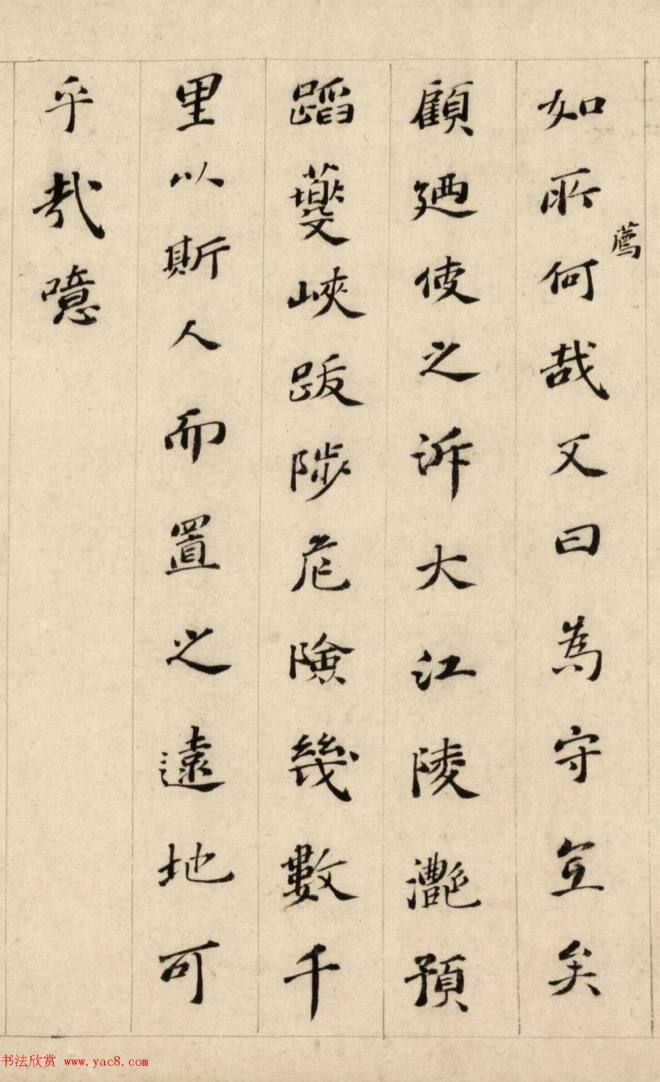 如所薦何哉又曰為守宜矣
顧廼使之泝大江陵灔預
蹈夔峽跋陟危險幾數千
里以斯人而置之遠地可
乎哉噫
书法欣赏 www.yac8.com